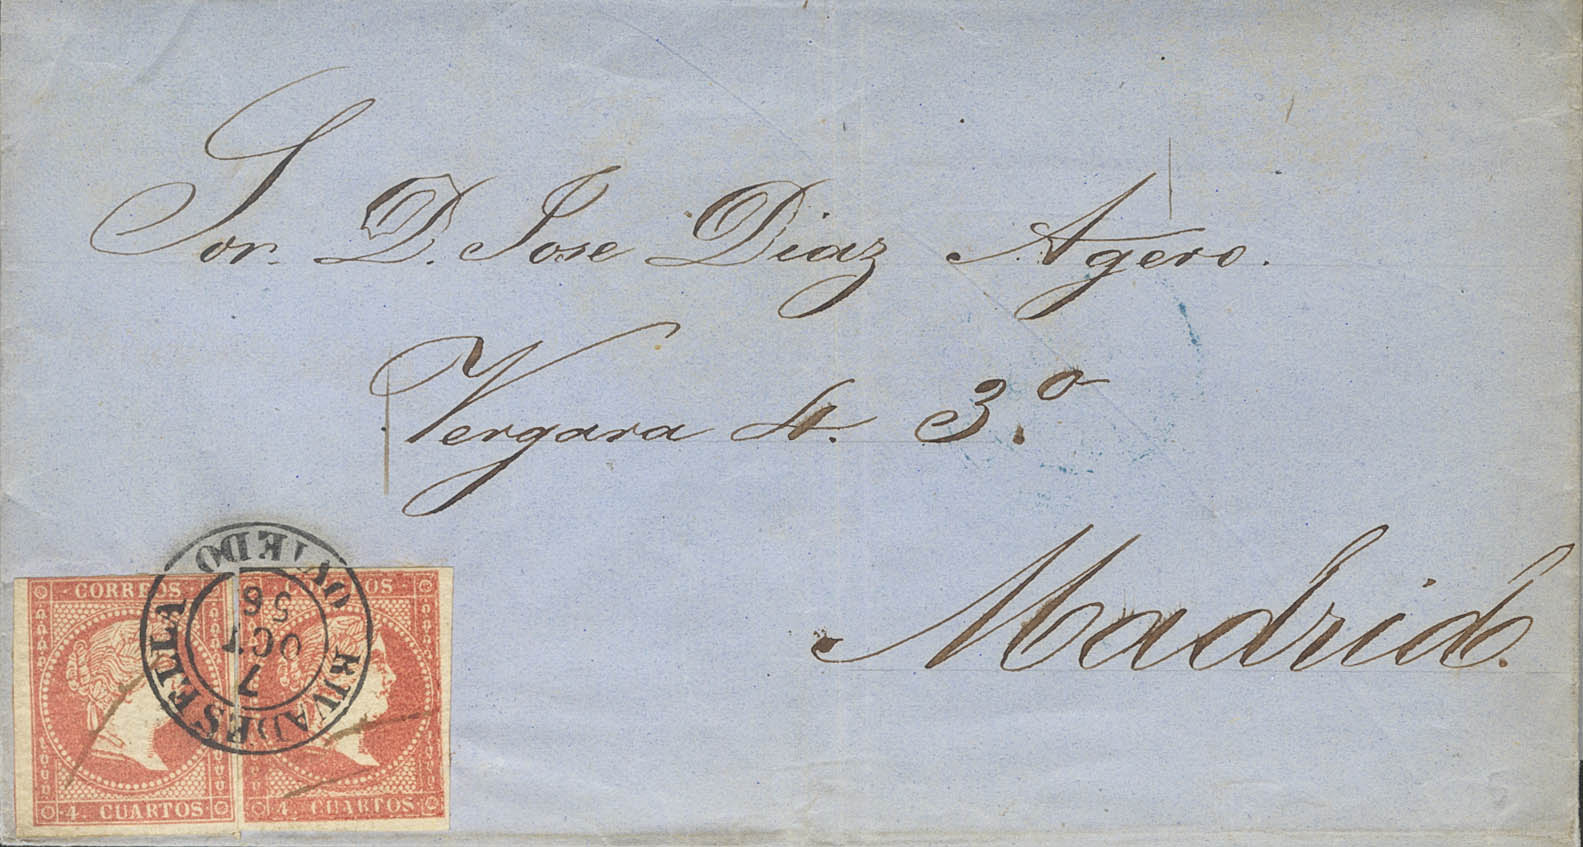 Sor. D. Jose Diaz Agero.
Vergara 4. 3.º
Madrid.
CORREOS
4. CUARTOS
CORREOS
4. CUARTOS
RIVADESELLA
7
OCT
58
OVIEDO